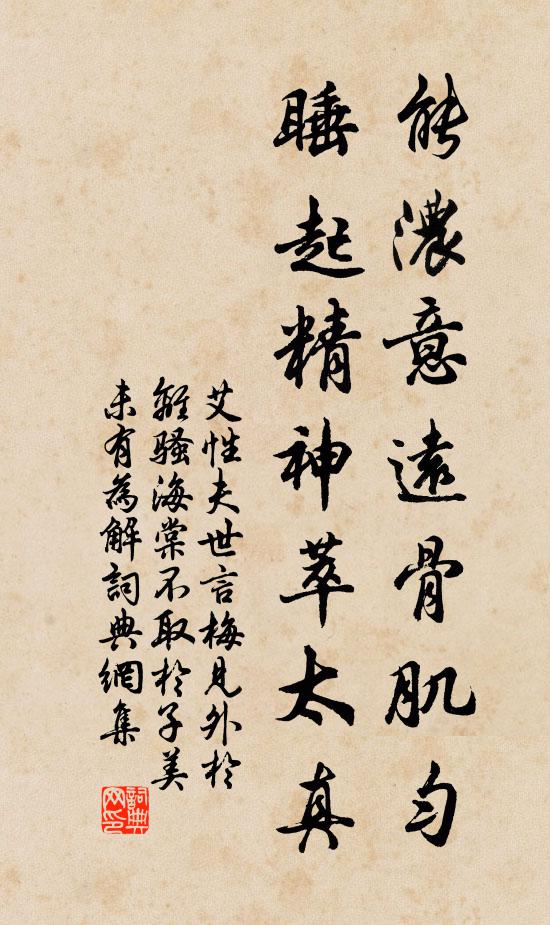 能濃意遠骨肌匀
睡起精神萃太真
艾性夫世言梅見外於
離騷海棠不取於子美
未有為解詞典網集
詞典網印